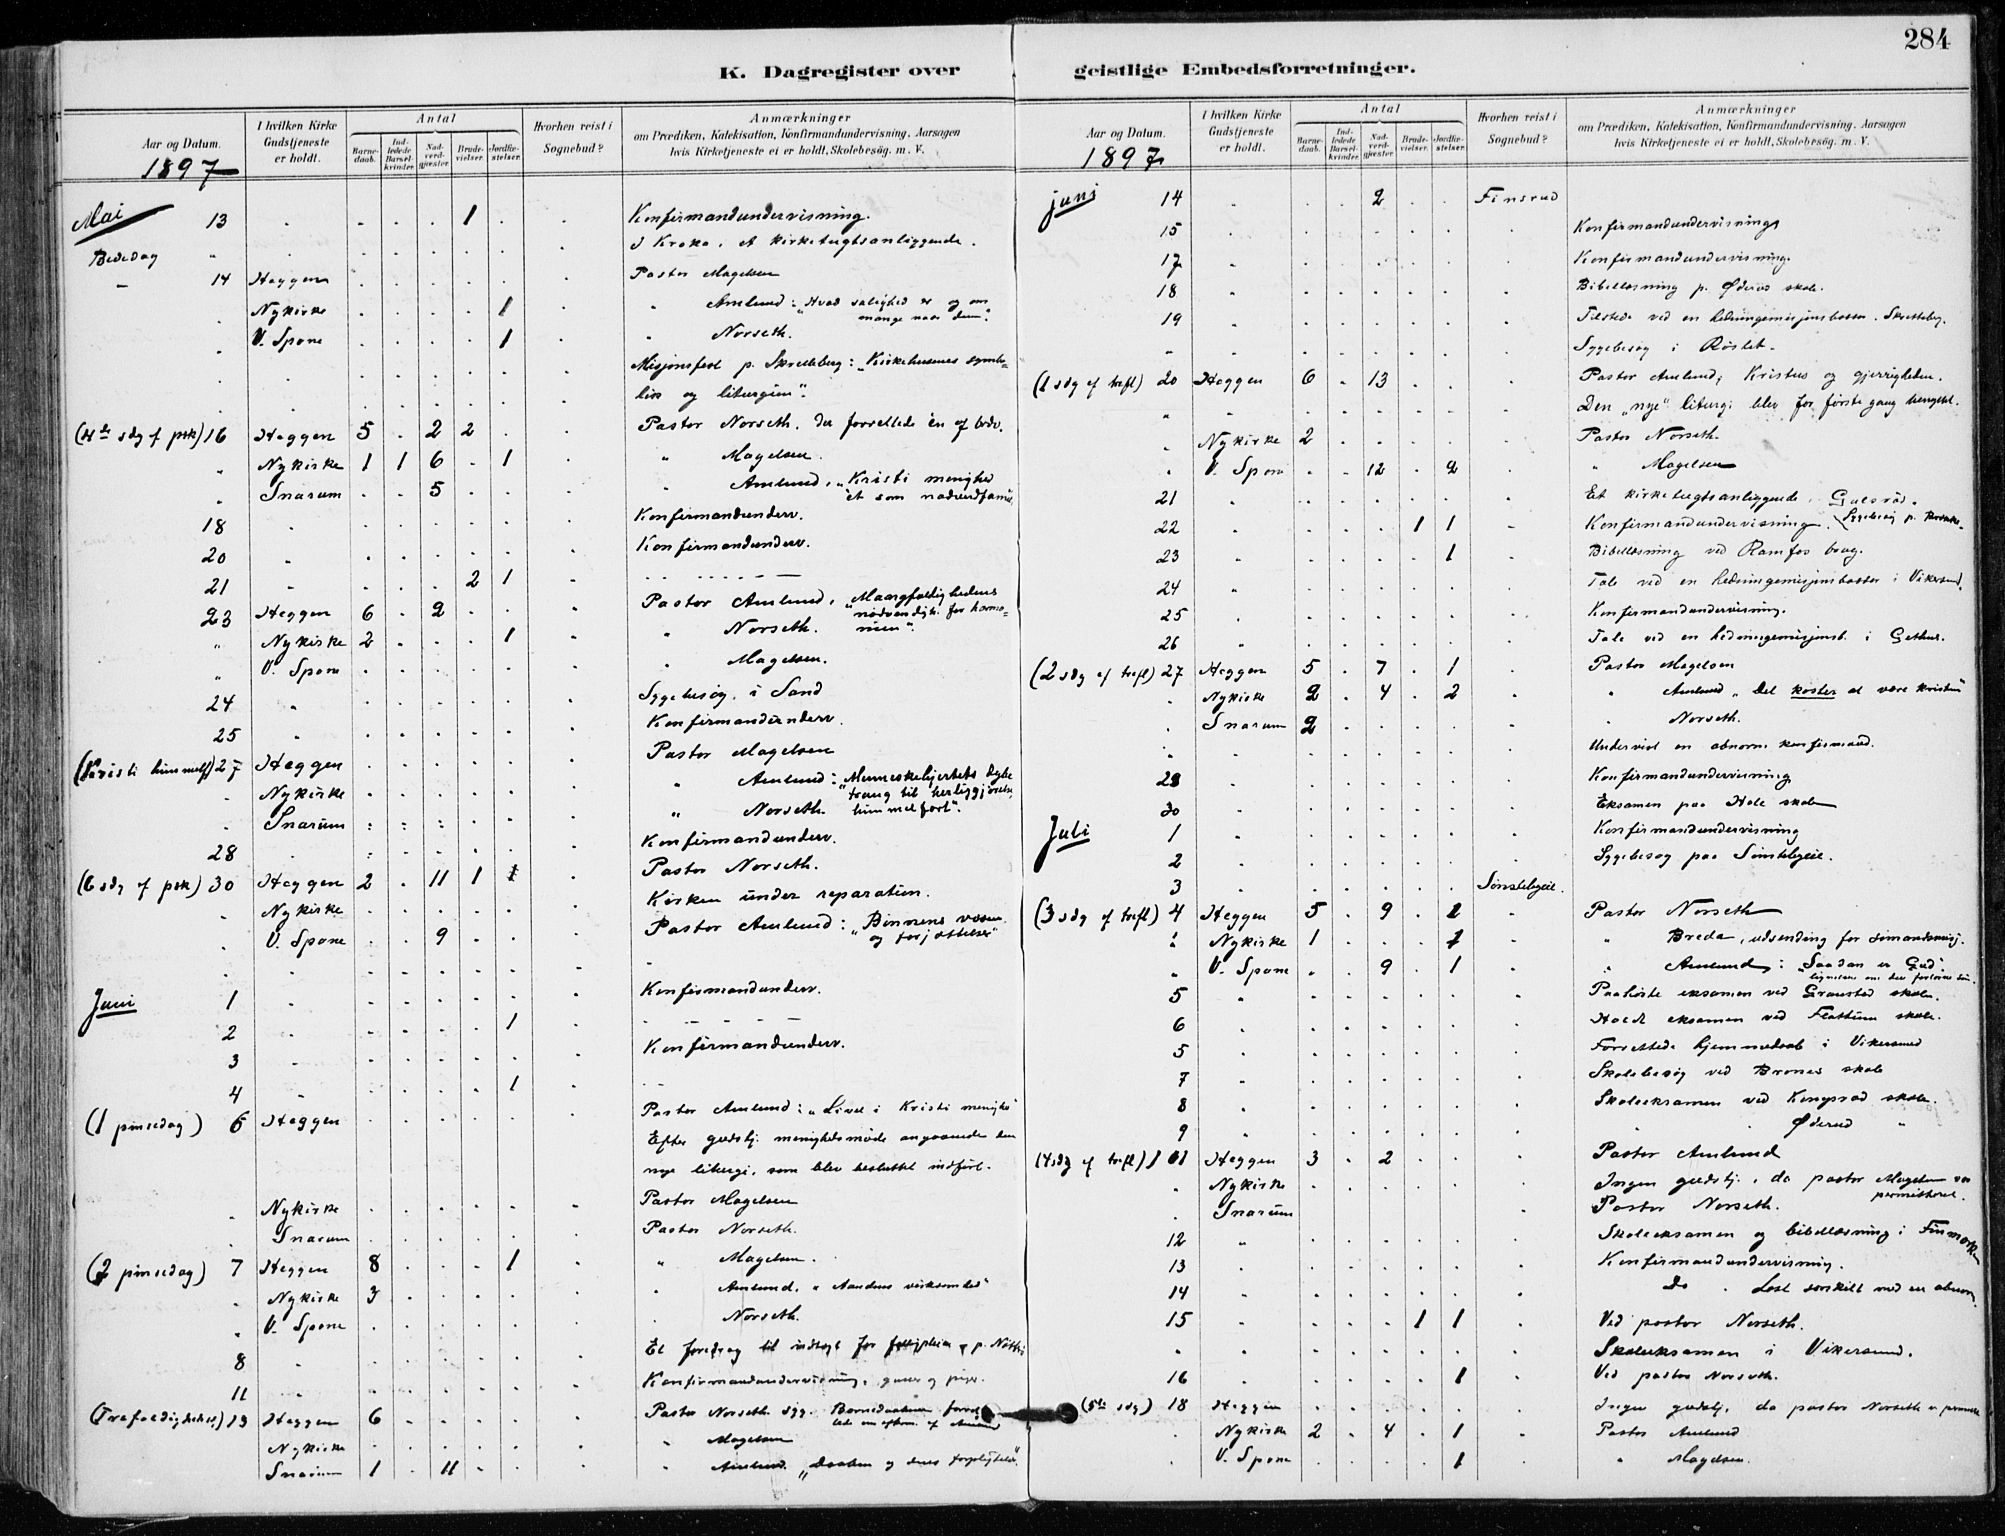 284
K. Dagregister over
geistlige Embedsforretninger.
Aar og Datum.
I hvilken Kirke Gudstjeneste er holdt.
Antal
Barne-daab.
Ind-ledede Barsel-kvinder.
Nad-verd-gjæster.
Brude-vielser.
Jordfæ-stelser.
Hvorhen reist i Sognebud?
Anmærkninger
om Prædiken, Katekisation, Konfirmandundervisning, Aarsagen
hvis Kirketjeneste ei er holdt, Skolebesög. m. V.
1897
Mai 13 1 Konfirmandundervisning.
Bededag " I Kroka. Et kirketugtsanliggende.
" 14 Heggen Pastor Magelsen
Nykirke 1 " Amlund: "Hvad salighed er og om
mange naar dem".
V. Spone 1 " Norseth.
Misjonsfest p. Skretteberg: "Kirkehusenes symbo-
lik og liturgien".
(4de sdg f psk) 16 Heggen 5 . 2 2 Pastor Norseth, der forrettede en af brdv.
" Nykirke 1 1 6 . 1 " Magelsen.
" Snarum . . 5 " Amlund, "Kristi menighed
et som nadverdfamilie"
18 Konfirmandunderv.
20 Konfirmandunderv.
21 2 1
23 Heggen 6 . 2 Pastor Amlund, "Mangfoldighedens
nødvendigh. for harmo-
nien".
" Nykirke 2 . . . 1 " Norseth.
" V. Spone " Magelsen.
24 Sygebesøg i Sand
25 Konfirmandunderv.
(Kristi himmelf) 27 Heggen Pastor Magelsen
Nykirke " Amlund: "Menneskehjertets dybe
trang til herliggjørelse,
himmelfart".
Snarum " Norseth
28 Konfirmandunderv.
(6 sdg f psk) 30 Heggen 2 . 11 1 1 Pastor Norseth.
Nykirke Kirken under reparation.
V. Spone . . 9 Pastor Amlund: "Bønnens væsen
og forjættelser"
Juni 1 Konfirmandunderv.
2 1
3 Konfirmandunderv.
4 1
(1 pinsedag) 6 Heggen Pastor Amlund: "Livet i Kristi menighed"
Efter gudstj. menighedsmøde angaaende den
nye liturgi, som blev besluttet indført.
Nykirke Pastor Magelsen
Snarum Pastor Norseth.
(2 pinsedag) 7 Heggen 8 . . . 1 " Magelsen.
Nykirke 3 " Amlund, "Aandens virksomhed"
V. Spone Norseth.
8 Et foredrag til indtægt for
11 Konfirmandundervisning, gutter og piger.
(Trefoldighedss) 13 Heggen 6 Pastor Norseth syg. Barnedaaben forret-
tet om efterm. af Amlund
Nykirke " Magelsen
Snarum 1 . 11 " Amlund. "Daaben og dens forpligtelse".
Aar og Datum.
I hvilken Kirke Gudstjeneste er holdt.
Antal
Barne-daab.
Ind-ledede Barsel-kvinder.
Nad-verd-gjæster.
Brude-vielser.
Jordfæ-stelser.
Hvorhen reist i Sognebud?
Anmærkninger
om Prædiken, Katekisation, Konfirmandundervisning. Aarsagen
hvis Kirketjeneste ei er holdt, Skolebesøg. m. V.
1897
juni 14 2 Finsrud
15 Konfirmandundervisning
17 Konfirmandundervisning.
18 Bibellæsning p. Øderud skole.
19 Tilstede ved en hedningemisjonsbasar. Skretteberg.
" Sygebesøg i Røslet.
(1 sdg ef trefl) 20 Heggen 6 . 13 Pastor Amlund; Kristus og gjerrigheden.
" " Den "nye" liturgi blev for første gang benyttet.
Nykirke 2 Pastor Norseth.
V. Spone . . 12 . 2 " Magelsen
21 Et kirketugtsanliggende. Gulsrud.
22 1 1 Konfirmandundervisning. Sygebesøg p.
23 1 Bibellæsning ved Ramfos brug.
24 Tale ved en hedningemisjonsbasar i Vikersund.
25 Konfirmandundervisning.
26 Tale ved en hedningemisjonsb. i Gethus.
(2 sdg ef trefl) 27 Heggen 5 . 7 . 1 Pastor Magelsen
Nykirke 2 . 4 . 2 " Amlund "Det koster at være kristen"
Snarum 2 " Norseth.
Undervist en abnorm konfirmand.
28 Konfirmandundervisning
30 Eksamen paa Hole skole
Juli 1 Konfirmandundervisning
2 Sygebesøg paa Sønstebyeie.
3 Sønstebyeie.
(3 sdg ef trefl) 4 Heggen 5 . 9 . 1 Pastor Norseth
" Nykirke 1 . . . 1 " Breda, udsending for sømandsmisj.
" V. Spone . . 9 . 1 " Amlund: "Saadan er Gud"
lignelsen om den fortabte søn.
5 Paahørte eksamen ved Gravstad skole.
6 Holdt eksamen ved Flattum skole.
5 Forrettede hjemmedaab i Vikersund
7 Skolebesøg ved Brones skole
8 Skoleeksamen ved Kongsrud skole.
9 " " Øderud "
(4 sdg ef trefl) 11 Heggen 3 . 2 Pastor Amlund
Nykirke Ingen gudstj., da pastor Magelsen var
permitteret.
Snarum Pastor Norseth.
12 Skoleeksamen og bibellæsning i Finmarken
13 Konfirmandundervisning.
14 Do . Læst særskilt med en abnorm.
15 1 1 Ved pastor Norseth.
" Skoleeksamen i Vikersund.
16 1 Ved pastor Norseth.
(5te sdg) 18 Heggen Ingen gudstj. da pastor Norseth er
Nykirke 2 . 4 . 1 Pastor Amlund
V. Spone 1 " Magelsen.